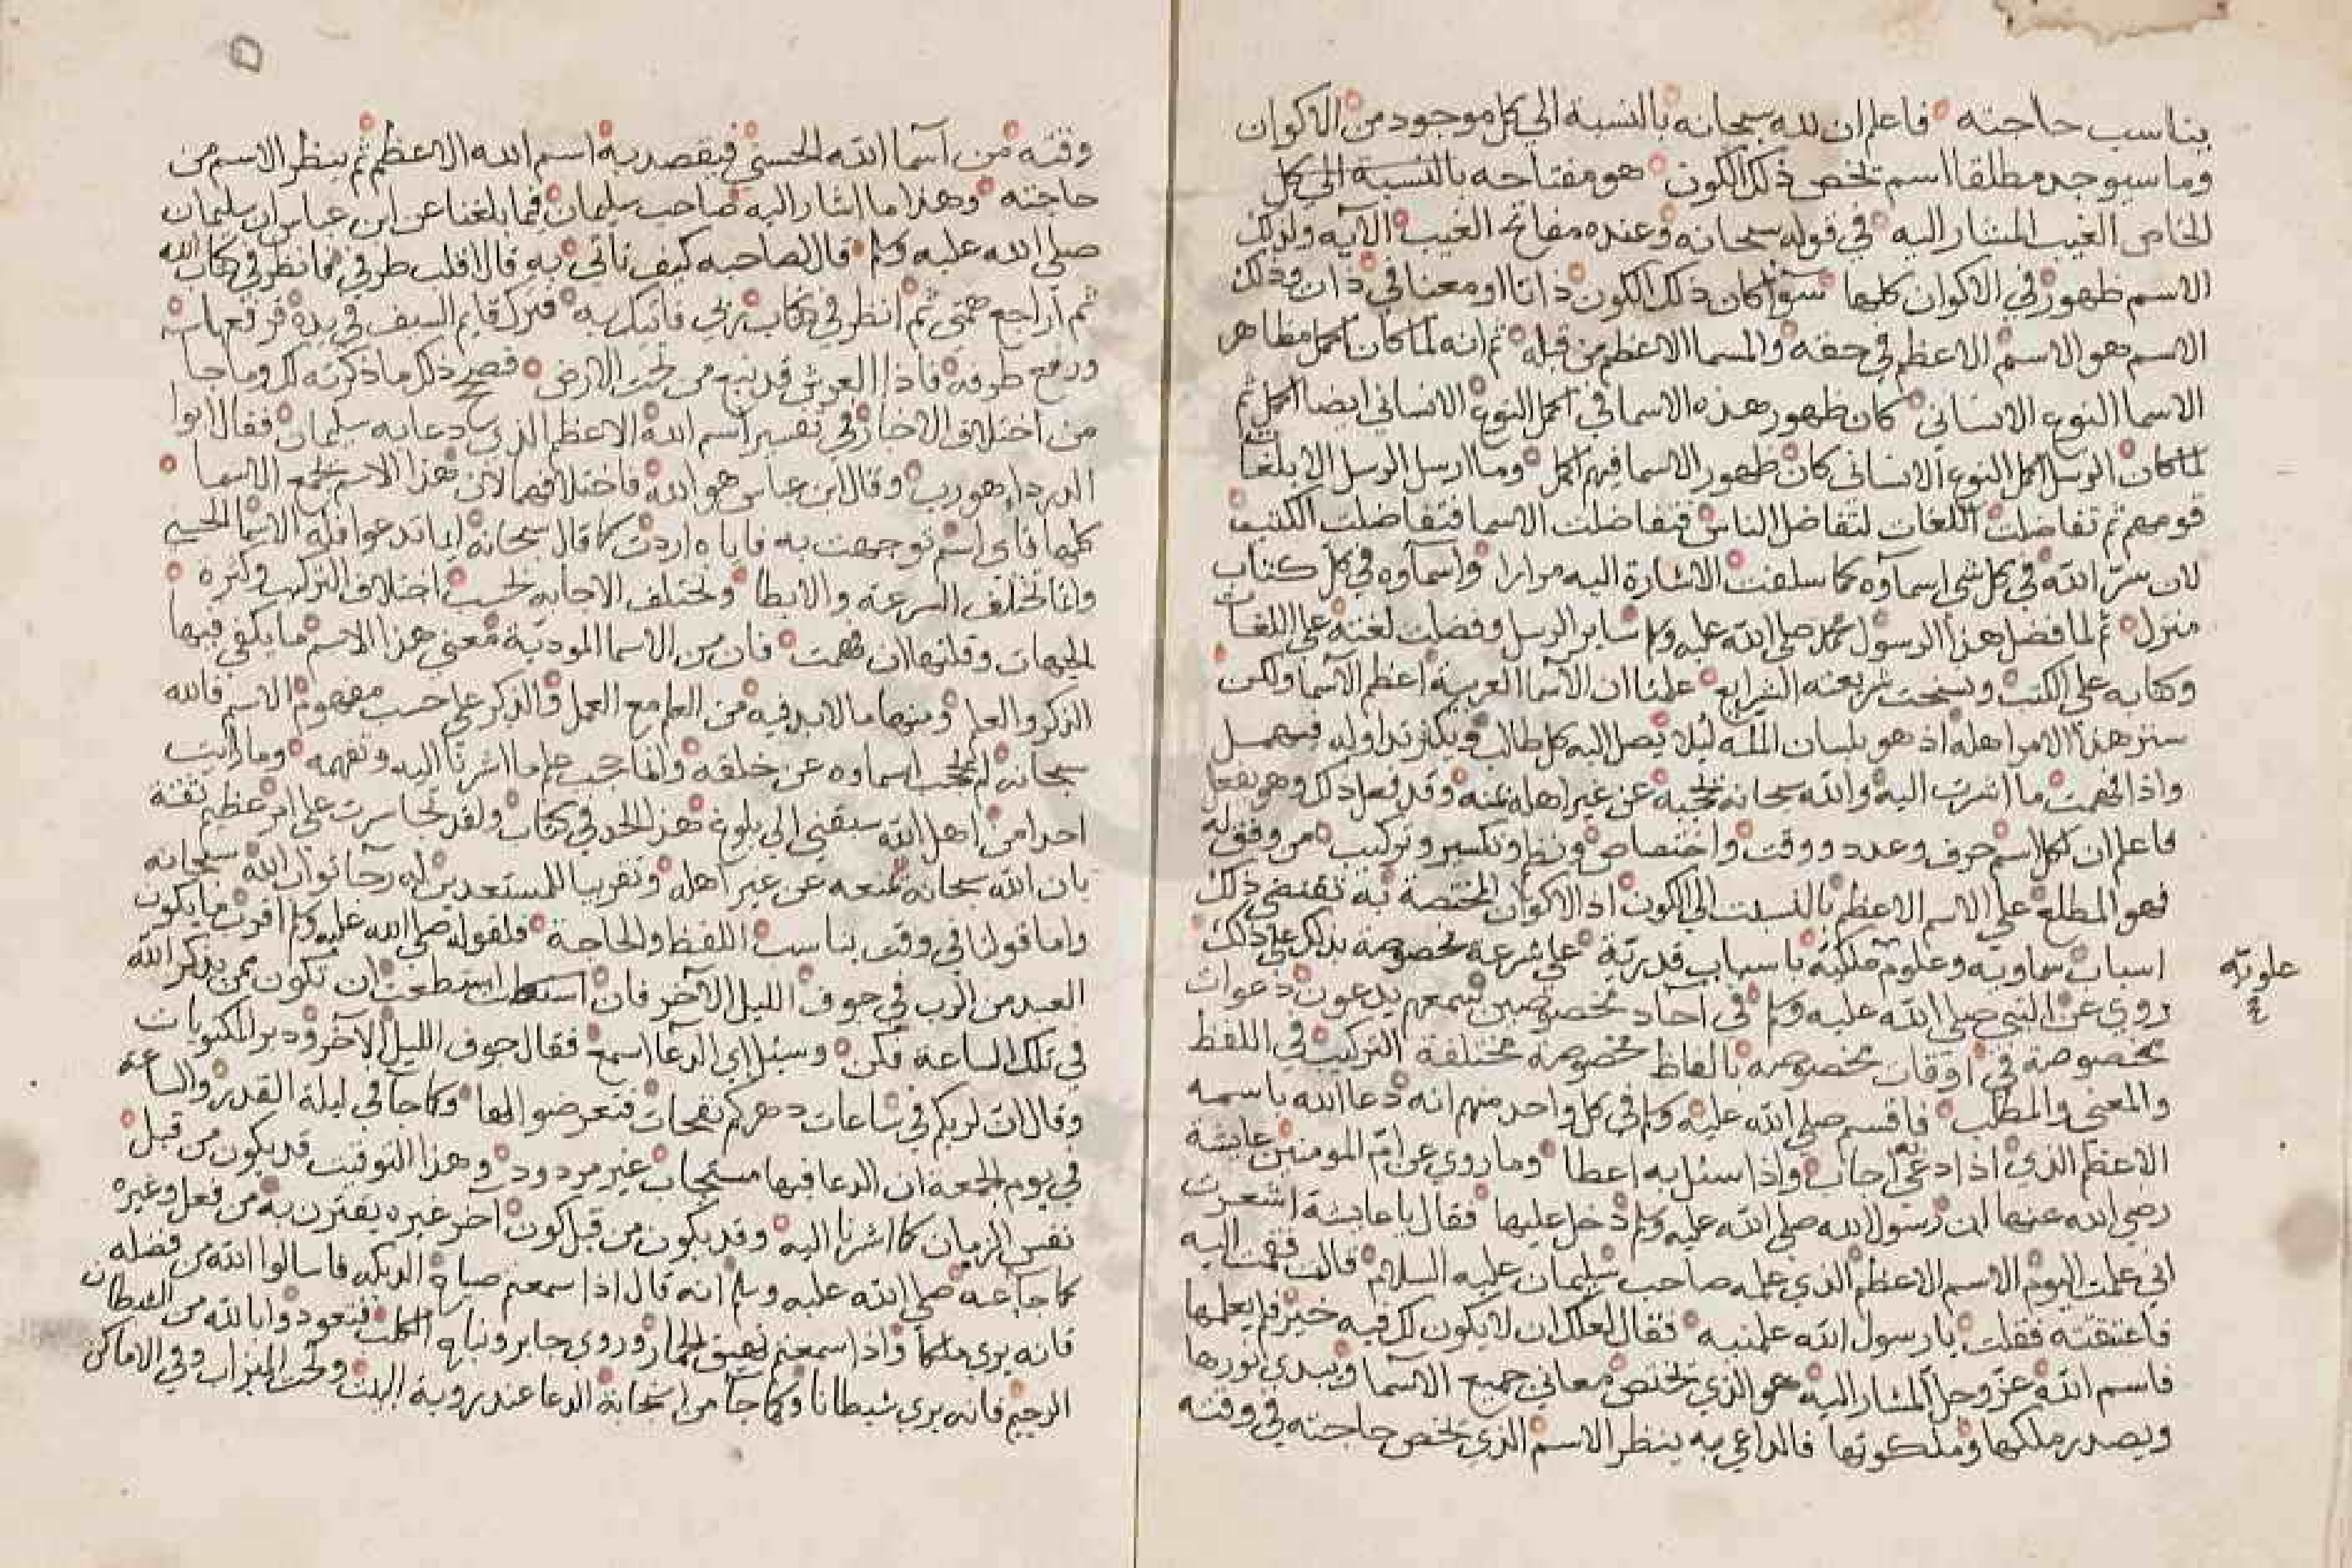 يناسب حاجته فاعلم ان لله سبحانه بالنسبة الي كل موجود من الاكوان
وما سيوجد مطلقا اسم تخص ذلك الكون هو مفتاحه بالنسبة الي كل
الخاص الغيب المشار اليه في قوله سبحانه وعنده مفاتح الغيب الآيه ولذلك
الاسم ظهور في الاكوان كلها سوآ كان ذلك الكون ذاتا او معنا في ذات وذلك
الاسم هو الاسم الاعظم في حقه والمسما الاعظم من قبله ثم انه لما كان اكمل مظاهر
الاسما النوع الانساني كان ظهور هذه الاسما في اكمل النوع الانساني ايضا اكمل ثم
لما كان الرسل اكمل النوع الانساني كان ظهور الاسما فيهم اكمل وما ارسل الرسل الا بلغات
قومهم ثم تفاضلت اللغات لتفاضل الناس فتفاضلت الاسما فتفاضلت الكتب
لان سر الله في كل شي اسماوه كما سلفت الاشارة اليه مرارا واسماوه في كل كتاب
منزل ثم لما فضل هذا الرسول محمد صلي الله عليه وسلم سائر الرسل وفضلت لغته علي اللغات
وكتابه علي الكتب ونسخت شريعته الشرايع علمنا ان الاسما العربية اعظم الاسما ولكن
ستر هذا الامر اهله اذ هو بلسان الملة ليلا يصل اليه كل طالب ويكثر تداوله فيهمل
واذا فهمت ما اشرت اليه والله سبحانه يحجبه عن غير اهله بمنه وقد فعل ذلك وهو يفعل
فاعلم ان لكل اسم حرف وعدد ووقت واختصاص ونظم وتكسير وتركيب من وفق له
فهو المطلع علي الاسم الاعظم بالنسبت الي الكون اذ الاكوان المختصة به تقتضي ذلك
اسباب سماويه وعلوم ملكية باسباب قدرية علي شرعة مخصوصة يدلك علي ذلك
علوية
روي عن النبي صلي الله عليه وسلم في احاد مخصوصين سمعهم يدعون دعوات
مخصوصة في اوقات مخصوصه بالفاظ مخصوصة مختلفة التركيب في اللفظ
والمعني والمطلب فاقسم صلي الله عليه وسلم في كل واحد منهم انه دعا الله باسمه
الاعظم الذي اذا دعي اجاب واذا سئل به اعطا وما روي عن ام المومنين عايشة
رضي الله عنها ان رسول الله صلي الله عليه وسلم دخل عليها فقال يا عايشة اشعرت
اني علمت اليوم الاسم الاعظم الذي علمه صاحب سليمان عليه السلام قالت فقمت اليه
فاعتنقته فقلت يا رسول الله علمنيه فقال لعلك ان لا يكون لك فيه خير فلم يعلمها
فاسم الله عز وجل المشار اليه هو الذي تختص معاني جميع الاسما ويبدي نورها
ويصدر ملكها وملكوتها فالداعي به ينظر الاسم الذي يخص حاجته في وقته
وقته من اسما الله الحسني فيقصد به اسم الله الاعظم ثم ينظر الاسم من
حاجته وهذا ما اشار اليه صاحب سليمان فيما بلغنا عن ابن عباس ان سليمان
صلي الله عليه وسلم قال لصاحبه كيف تاتي به قال اقلب طرفي فانظر في كتاب الله
ثم اراجع همتي ثم انظر في كتاب ربي فاتيك به فترك قايم السيف في يده فوقعها
ورفع طرفه فاذا العرش قد نبع من تحت الارض فصح ذلك ما ذكرته لك وما جا
من اختلاف الاخبار في تفسير اسم الله الاعظم الذي دعا به سليمان فقال ابوا
الدردا هو رب وقال ابن عباس هو الله فاختلافهما لان هذا الاسم يجمع الاسما
كلها فاي اسم توجهت به فاياه اردت كما قال سبحانه ايا ما تدعوا فله الاسما الحسني
وانما تختلف السرعة والابطا وتختلف الاجابه بحسب اختلاف التركيب وكثرة
الجهات وقلتها ان فهمت فان من الاسما المودية معني هذا الاسم ما يكفي فيها
الذكر والعلم ومنها ما لابد فيه من العلم مع العمل والذكر علي حسب مفهوم الاسم فالله
سبحانه لم يحجب اسماوه عن خلقه وانما يحجب علم ما اشرنا اليه وتفهمه وما رايت
احدا من اهل الله سبقني الي بلوغ هذا الحد في كتاب ولقد تجاسرت علي امر عظيم ثقة
بان الله سبحانه يمنعه عن غير اهله وتقريبا للمستعدين له رجا ثواب الله سبحانه
واما قولنا في وقت يناسب اللفظ والحاجة فلقوله صلي الله عليه وسلم اقرب ما يكون
العبد من الرب في جوف الليل الآخر فان استطعت ان تكون ممن يذكر الله
في تلك الساعة فكن وسئل اي الدعا اسمع فقال جوف الليل الآخر ودبر المكتوبات
وقال ان لربكم في ساعات دهركم نفحات فتعرضوا لها وكما جا في ليلة القدر والساعة
في يوم الجمعة ان الدعا فيها مستجاب غير مردود وهذا التوقيت قد يكون من قبل
نفس الزمان كما اشرنا اليه وقد يكون من قبل كون آخر غيره يقترن به من فعل وغيره
كما جا عنه صلي الله عليه وسلم انه قال اذا سمعتم صياح الديكه فاسالوا الله من فضله
فانه يري ملكا واذا سمعتم نهيق الحمار وروي جابر ونباح الكلب فتعوذوا بالله من الشيطان
الرجيم فانه يري شيطانا وكما جا من استجابة الدعا عند روية البيت وتحت الميزاب وفي الاماكن